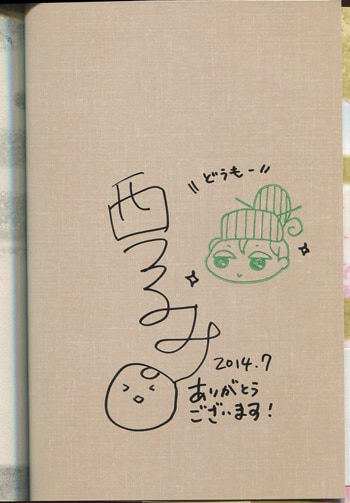 〃どうもー〃
西つるみ
2014.7
ありがとう
ございます!